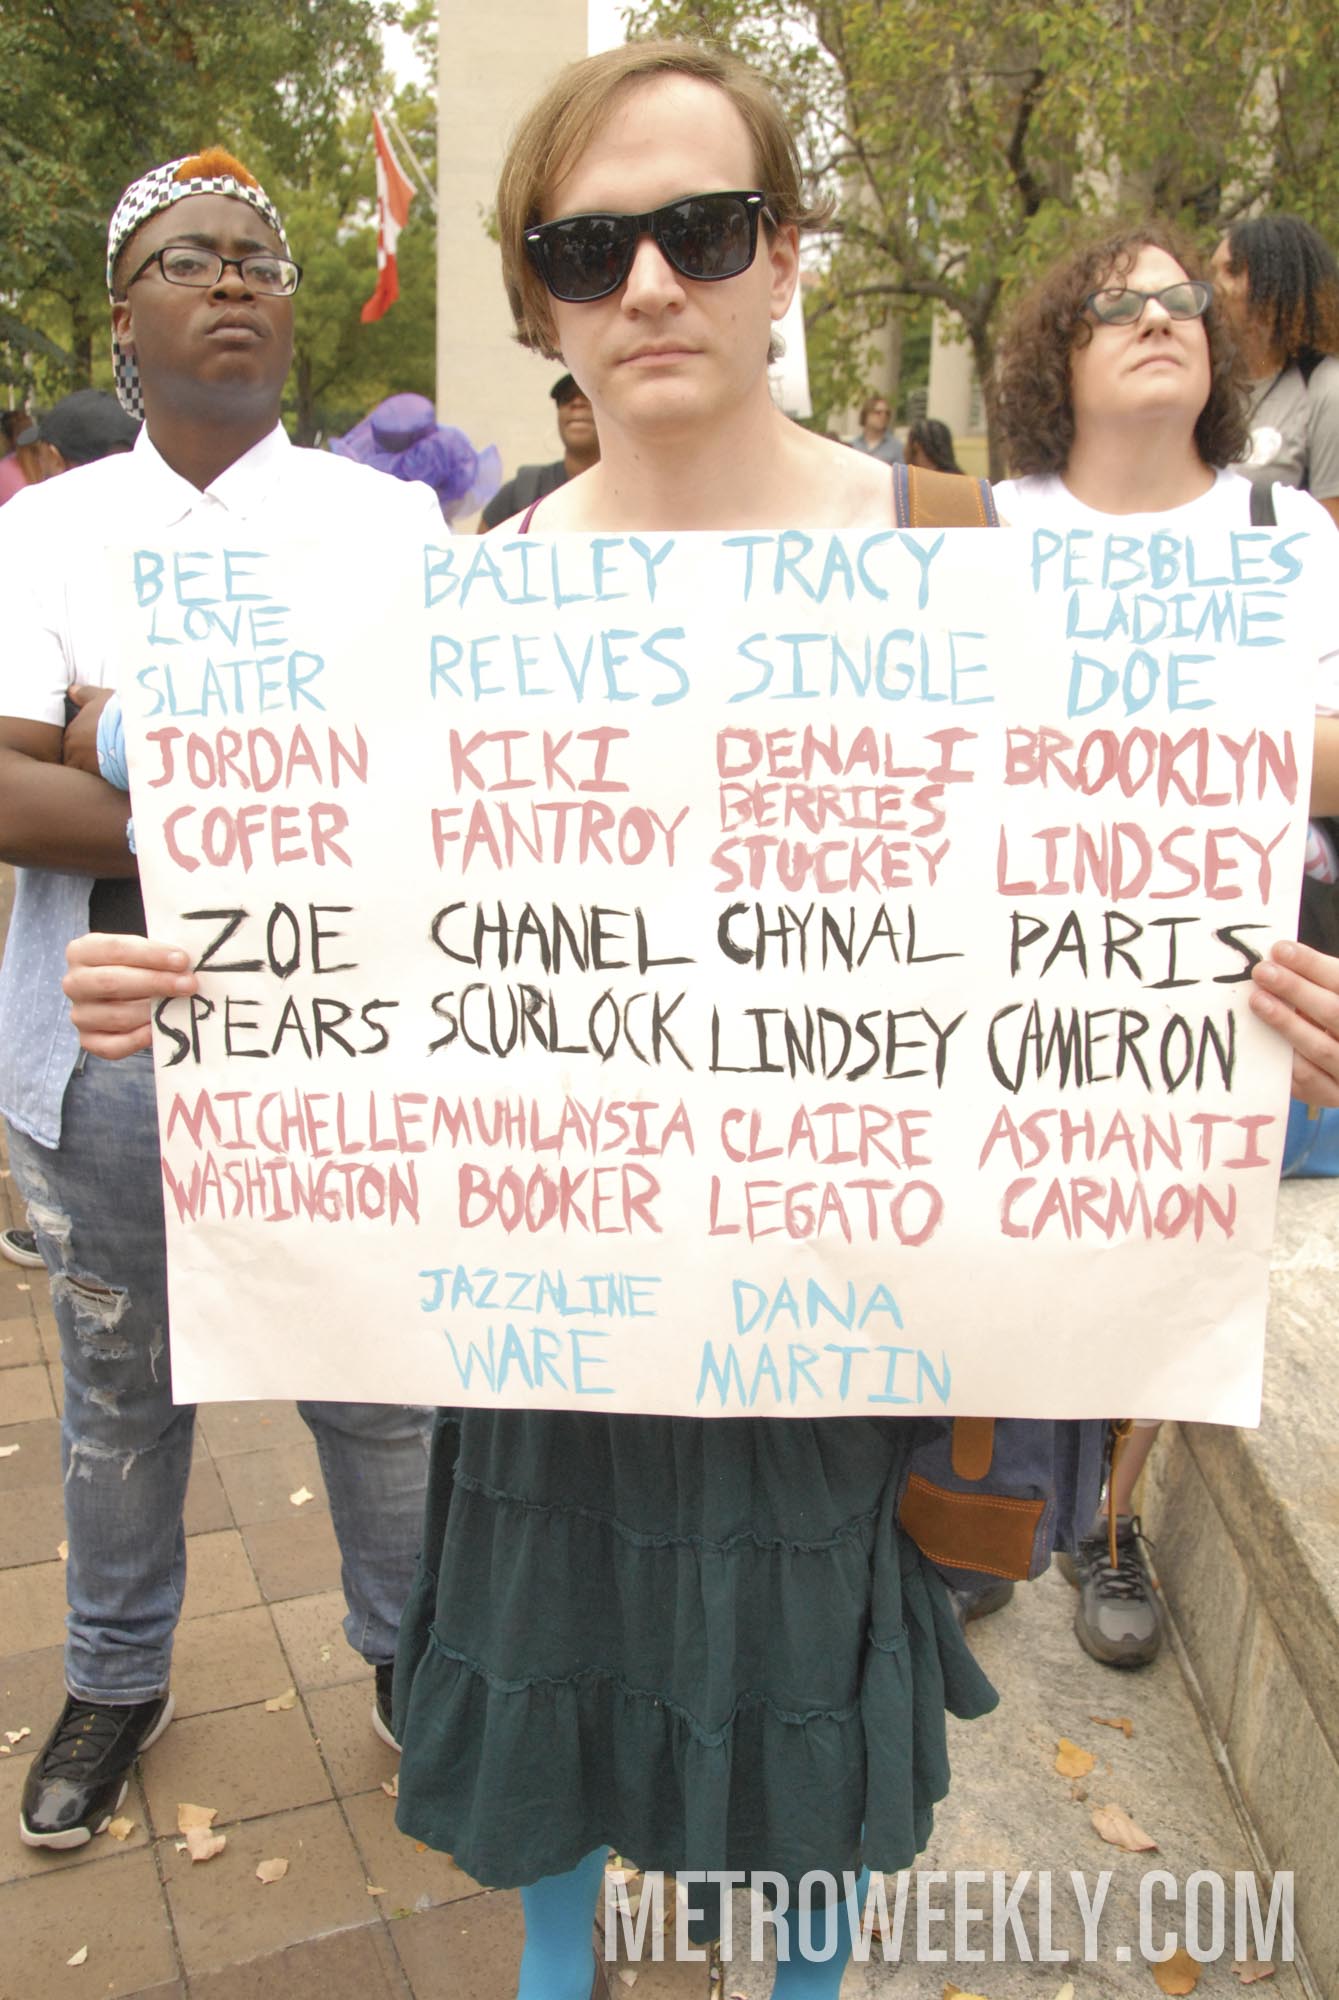 BEE
LOVE
SLATER
BAILEY
REEVES
TRACY
SINGLE
PEBBLES
LADIME
DOE
JORDAN
COFER
KIKI
FANTROY
DENALI
BERRIES
STUCKEY
BROOKLYN
LINDSEY
ZOE
SPEARS
CHANEL
SCURLOCK
CHYNAL
LINDSEY
PARIS
CAMERON
MICHELLE
WASHINGTON
MUHLAYSIA
BOOKER
CLAIRE
LEGATO
ASHANTI
CARMON
JAZZALINE
WARE
DANA
MARTIN
METROWEEKLY.COM